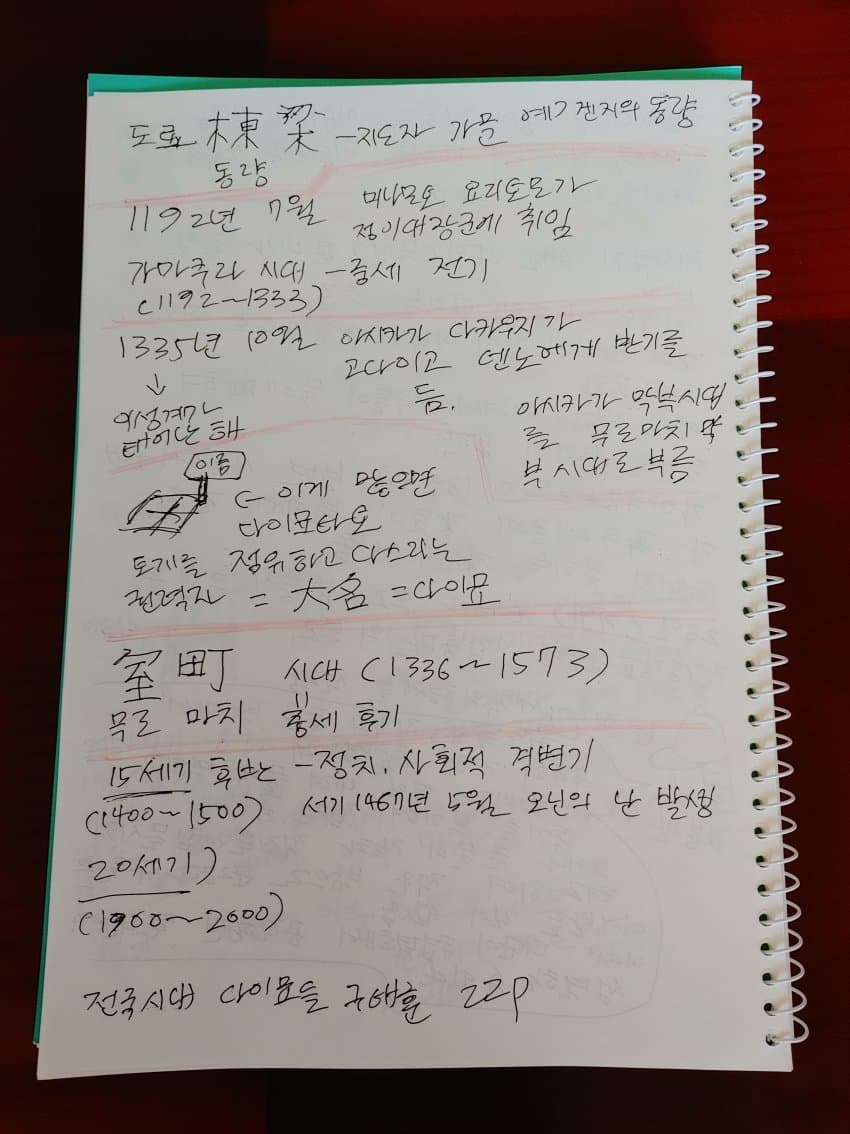 도료 棟梁 -지도자 가문 예) 겐지의 동량
동량
1192년 7월 미나모토 요리토모가
정이대장군에 취임
가마쿠라 시대 -중세 전기
(1192~1333)
1335년 10월 아시카가 다카우지가
고다이고 덴노에게 반기를
듬.
↓
이성계가
태어난 해
아시카가 막부시대
를 무로마치 막
부 시대로 부름
이름
← 이게 많으면
다이묘타도
토지를 점유하고 다스리는
권력자 = 大名 = 다이묘
室町 시대 (1336~1573)
무로 마치 중세 후기
15세기 후반는 -정치.사회적 격변기
(1400~1500) 서기 1467년 5월 오닌의 난 발생
20세기)
(1900~2000)
전국시대 다이묘들 구태훈 22p